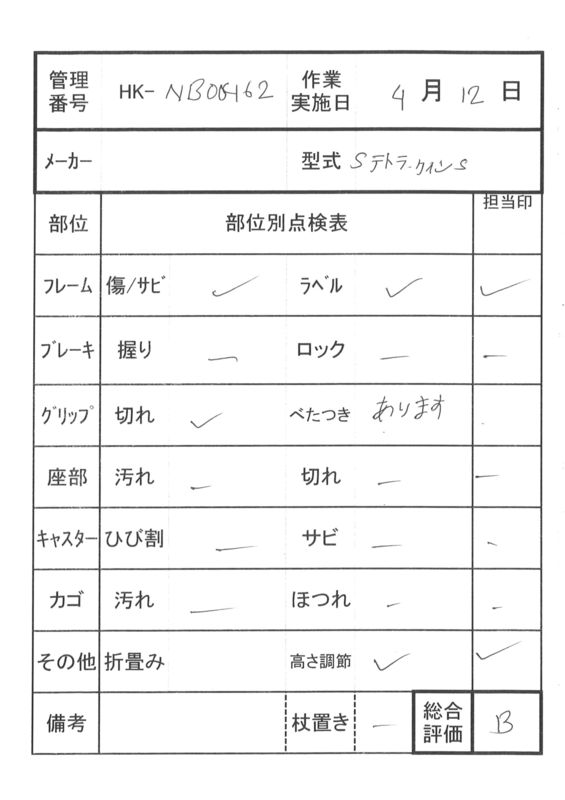 管理番号 HK- 作業実施日 4月12日
メーカー 型式 Sテトラークイン S
部位 部位別点検表 担当印
フレーム 傷/サビ ✓ ラベル ✓ ✓
ブレーキ 握り — ロック — —
グリップ 切れ ✓ べたつき あります
座部 汚れ — 切れ — —
キャスター ひび割 — サビ — -
カゴ 汚れ — ほつれ - -
その他 折畳み 高さ調節 ✓ ✓
備考 杖置き — 総合評価 B